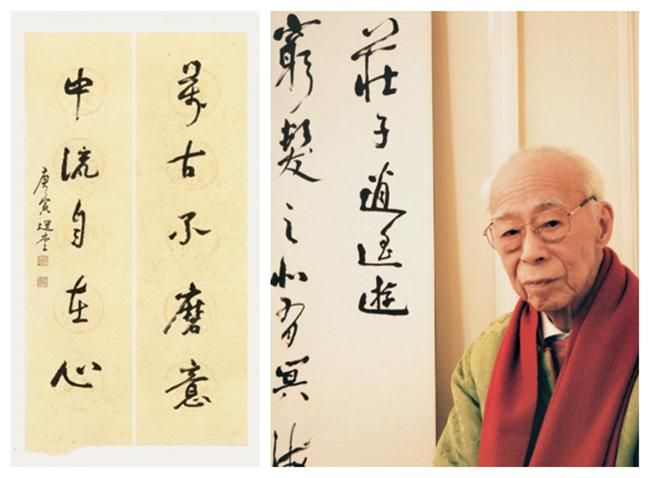 萬古不磨意
中流自在心
庚寅選堂
莊子逍遙遊
窮髮之北有冥